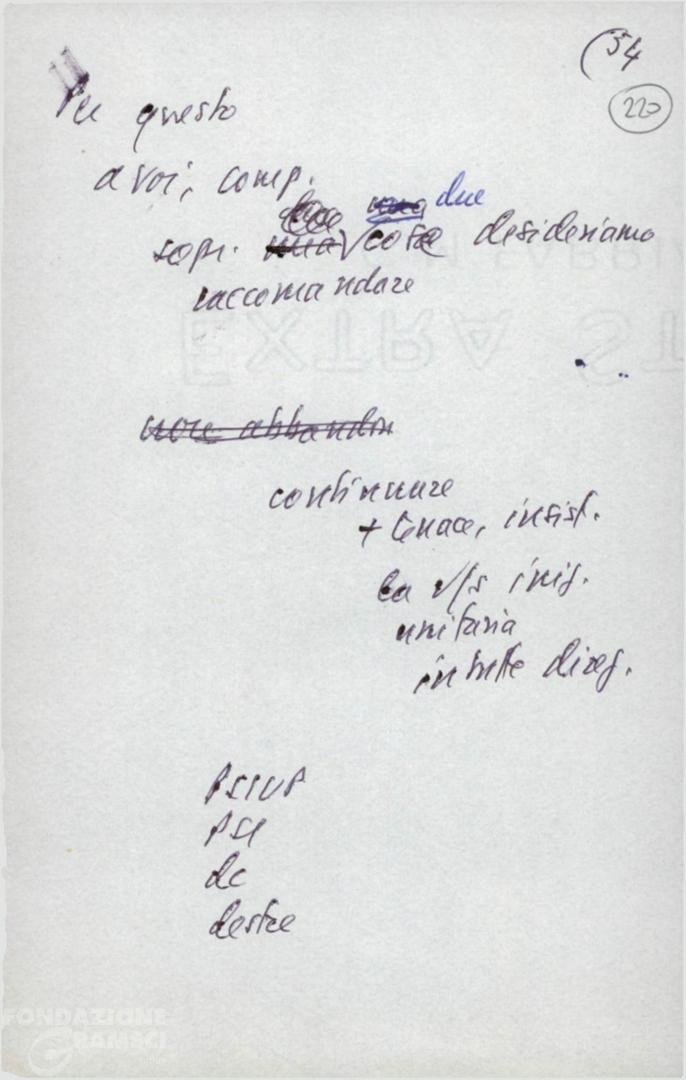 (54
220
Per questo
a voi, comp.
due una due
sopr. una cose desideriamo
raccomandare
EXTRA ST
non abbandon
continuare
+ tenace, insist.
la v/s iniz.
unitaria
in tutte direz.
PSIUP
PSI
dc
destre
FONDAZIONE
GRAMSCI